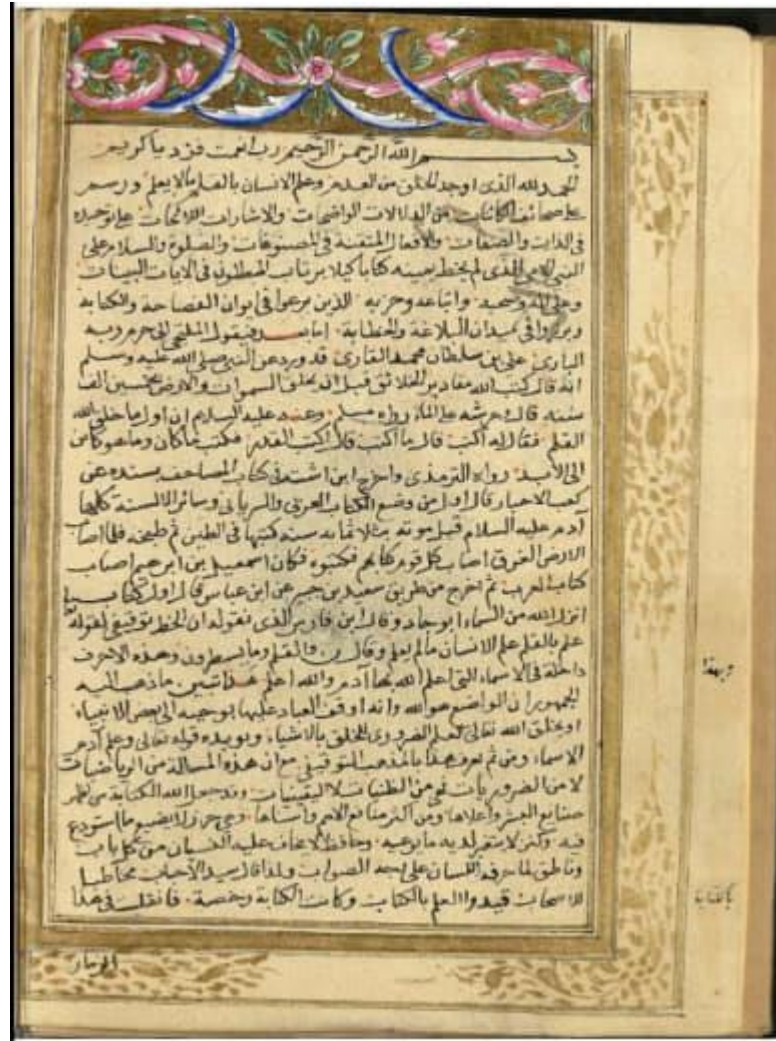 بسم الله الرحمن الرحيم رب انعمت فزد يا كريم
الحمد لله الذي اوجد الخلق من العدم وعلم الانسان بالقلم ما لا يعلم ورسم
على صحائف الكائنات من الدلالات الواضحات والاشارات اللائحات على توحيده
في الذات والصفات والافعال المتقنة في المصنوعات والصلوة والسلام على
النبي الامي الذي لم يخط بيمينه كتابا كيلا يرتاب المبطلون في الايات البينات
وعلى اله وصحبه واتباعه وحزبه الذين برعوا في ايوان الفصاحة والكتابة
وبرزوا في ميدان البلاغة والخطابة اما بعد فيقول الملتجي الى حرم ربه
الباري علي بن سلطان محمد القاري قد ورد عن النبي صلى الله عليه وسلم
انه قال كتب الله مقادير الخلائق قبل ان يخلق السموات والارض بخمسين الف
سنة قال وعرشه على الماء رواه مسلم وعنه عليه السلام ان اول ما خلق الله
القلم فقال له اكتب قال ما اكتب قال اكتب القدر فكتب ما كان وما هو كائن
الى الابد رواه الترمذي واخرج ابن اشته في كتاب المصاحف بسنده عن
كعب الاحبار قال اول من وضع الكتاب العربي والسرياني وسائر الالسنة كلها
آدم عليه السلام قبل موته بثلاثمايه سنه كتبها في الطين ثم طبخه فلما اصاب
الارض الغرق اصاب كل قوم كتابهم فكتبوه فكان اسمعيل بن ابرهيم اصاب
كتاب العرب ثم اخرج من طريق سعيد بن جبير عن ابن عباس قال اول كتاب
انزل الله من السماء ابو جاد وقال ابن فارس الذي نقوله ان الخط توقيفي لقوله
علم بالقلم علم الانسان مالم يعلم وقال ن والقلم وما يسطرون وهذه الاحرف
داخلة في الاسماء التي اعلم الله بها آدم والله اعلم ما ذهب اليه
الجمهور ان الواضع هو الله وانه اوقف العباد عليها بوحيه الى بعض الانبياء
او بخلق الله تعالى العلم الضروري للخلق بالاشياء ويويده قوله تعالى وعلم آدم
الاسماء ومن ثم يعرف هذا بالمذهب التوقيفي مع ان هذه المسالة من الرياضيات
لا من الضروريات فهي من الظنيات لا اليقينيات وقد جعل الله الكتابة من
صنايع البشر واعلاها ومن اكبر منافع الامم واسناها وهي حرز لا يضيع ما استودع
فيه وكنز لا يتغير لديه ما يوعيه وحافظ لا يخاف عليه النسيان من كل باب
وناطق لما حرفه اللسان على وجه الصواب ولذا قال سيد الاحباب مخاطبا
للاصحاب قيدوا العلم بالكتاب وكانت الكتابة رخصة فانقلبت في هذا
وبهذا
بالكتابة
الزمان